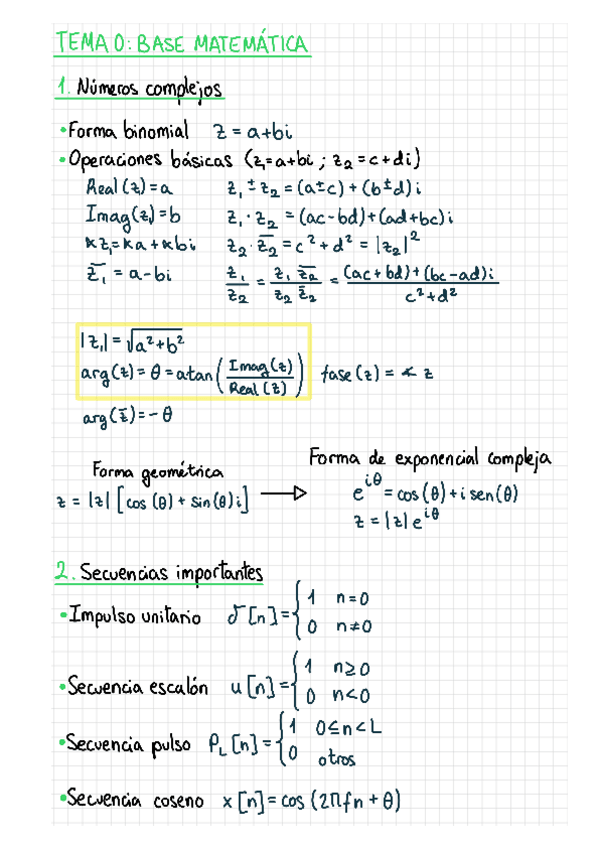 TEMA 0: BASE MATEMÁTICA
1. Números complejos
• Forma binomial z = a+bi
• Operaciones básicas (z₁=a+bi ; z₂=c+di)
Real(z)=a z₁ ± z₂ = (a±c) + (b±d)i
Imag(z)=b z₁ · z₂ = (ac-bd)+(ad+bc)i
kz₁=ka+kbi z₂·z̅₂ = c²+d² = |z₂|²
z̅₁ = a-bi z₁/z₂ = z₁ z̅₂/z₂ z̅₂ = (ac+bd)+(bc-ad)i/c²+d²
|z₁| = √a²+b²
arg(z) = θ = atan(Imag(z)/Real(z)) fase(z) = ∢ z
arg(z̅)=-θ
Forma geométrica
z = |z| [cos(θ) + sin(θ)i] →
Forma de exponencial compleja
e^iθ = cos(θ)+i sen(θ)
z = |z|e^iθ
2. Secuencias importantes
• Impulso unitario δ[n]={1 n=0
0 n≠0
• Secuencia escalón u[n]={1 n≥0
0 n<0
• Secuencia pulso P_L[n]={1 0≤n<L
0 otros
• Secuencia coseno x[n]=cos(2Πfn+θ)